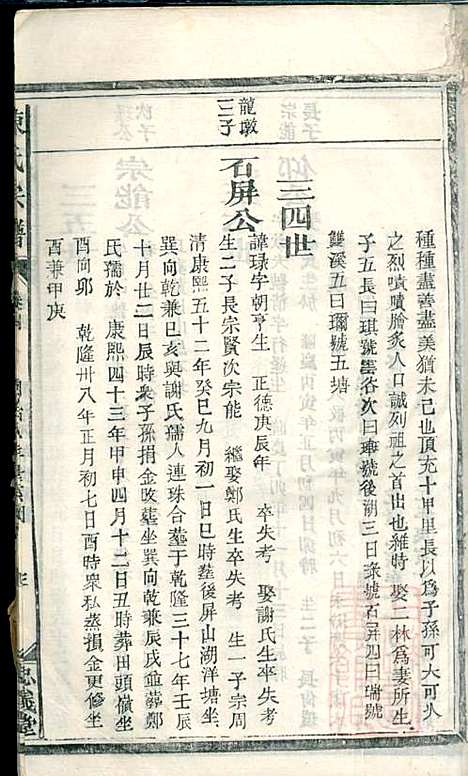 種種盡善盡美猶未已也頂充十甲里長以爲子孫可大可久
之烈嘖嘖膾炙人口誠列祖之首出也雜時 娶二林爲妻所生
子五長曰琪號雲谷次曰璍號後湖三日琭號石屏四曰瑞號
雙溪五曰璽號五塘
三四世
龍墩
三子
石屏公
諱琭字朝亨生 正德庚辰年 卒失考 娶謝氏生卒失考
生二子長宗賢次宗能 繼娶鄭氏生卒失考 生一子宗周
清康熙五十二年癸巳九月初一日巳時塟後屏山湖洋塘坐
巽向乾兼巳亥與謝氏孺人連珠合塟于乾隆三十七年壬辰
十月廿二日辰時衆子孫捐金攺塟坐巽向乾兼辰戌僉葬鄭
氏孺於 康熙四十三年甲申四月十二日丑時葬田頭嶺坐
酉向卯 乾隆卅八年正月初七日酉時衆私蒸損金更修坐
酉兼甲庚
氏宗譜